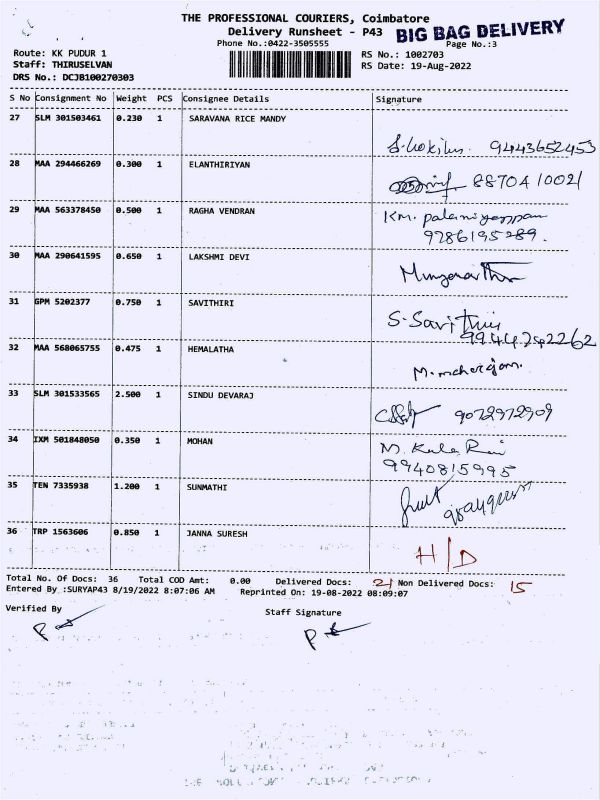 THE PROFESSIONAL COURIERS, Coimbatore
Delivery Runsheet - P43 BIG BAG DELIVERY
Phone No.:0422-3505555 Page No.:3
Route: KK PUDUR 1 RS No.: 1002703
Staff: THIRUSELVAN RS Date: 19-Aug-2022
DRS No.: DCJB100270303
S No Consignment No Weight PCS Consignee Details Signature
27 SLM 301503461 0.230 1 SARAVANA RICE MANDY
9443652453
28 MAA 294466269 0.300 1 ELANTHIRIYAN
8870410021
29 MAA 563378450 0.500 1 RAGHA VENDRAN
Km. palaniyappan
9786195289.
30 MAA 290641595 0.650 1 LAKSHMI DEVI
31 GPM 5202377 0.750 1 SAVITHIRI
S. Savithiri
9944742262
32 MAA 568065755 0.475 1 HEMALATHA
33 SLM 301533565 2.500 1 SINDU DEVARAJ
9072972909
34 IXM 501848050 0.350 1 MOHAN
M. Kala Rani
9940815995
35 TEN 7335938 1.200 1 SUNMATHI
36 TRP 1563606 0.850 1 JANNA SURESH
H/D
Total No. Of Docs: 36 Total COD Amt: 0.00 Delivered Docs: 21 Non Delivered Docs: 15
Entered By :SURYAP43 8/19/2022 8:07:06 AM Reprinted On: 19-08-2022 08:09:07
Verified By Staff Signature